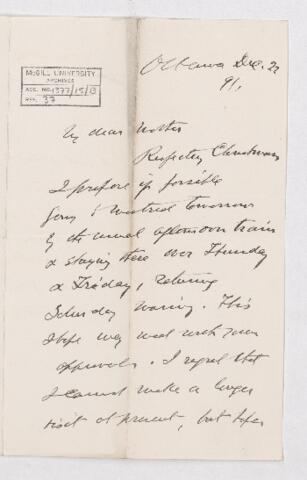 McGILL UNIVERSITY
ARCHIVES
ACC. NO. 1377/15/3
REF. 37
Ottawa Dec. 22
91.
My dear Mother
Respecting Christmas
I propose if possible
going to Montreal tomorrow
by the usual afternoon train
& staying there over Thursday
& Friday, returning
Saturday morning. This
I hope may meet with your
approval. I regret that
I cannot make a longer
visit at present, but hope